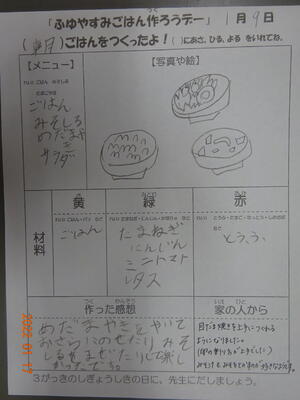 「ふゆやすみごはん作ろうデー」 1月9日
(朝)ごはんをつくったよ！( )にあさ、ひる、よる をいれてね。
【メニュー】
【写真や絵】
ごはん
みそしる
めだまやき
サラダ
材料
黄
緑
赤
ごはん
たまねぎ
にんじん
ミニトマト
レタス
とうふ
作った感想
家の人から
めだまやきをやいて
おさらにのせたりみそ
しるをまぜたりして楽し
かったです。
目だま焼きを上手につくれる
ようになりました。
3がっきのしぎょうしきの日に、先生にだしましょう。
2022 01 11